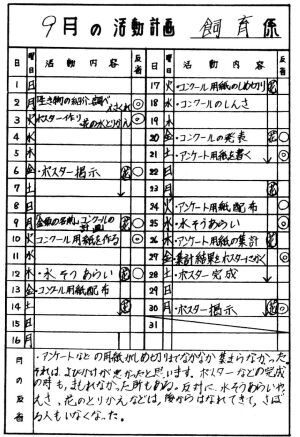 9月の活動計画 飼育係
日 曜日 活動内容 反省
1 日
2 月 生き物の紹介、調べ
3 火 ポスター作り ◎
4 水
5 木
6 金 ・ポスター掲示 ○
7 土
8 日
9 月 金魚の名前、コンクールの計画 ○
10 火 コンクール用紙を作る ◎
11 水
12 木 ・水そうあらい ○
13 金 ・コンクール用紙配布
14 土
15 日
16 月
日 曜日 活動内容 反省
17 火 ・コンクール用紙のしめ切り
18 水 ・コンクールのしんさ
19 木
20 金 ・コンクールの発表 ○
21 土 ・アンケート用紙を書く ◎
22 日
23 月
24 火 アンケート用紙配布 ○
25 水 ・水そうあらい ◎
26 木 ・アンケート用紙の集計 ○
27 金 ・集計結果をポスターにかく ◎
28 土 ・ポスター完成 ○
29 日
30 月 ・ポスター掲示 ◎
31
月の反省
・アンケートなどの用紙がしめ切りまでなかなか集まらなかった。
それはよびかけが悪かったと思います。ポスターなどの完成
の時も、まもれなかった所もある。反対に、水そうあらいや
えさ、花のとりかえなどは、後からはなれてきて、さぼ
る人もいなくなった。